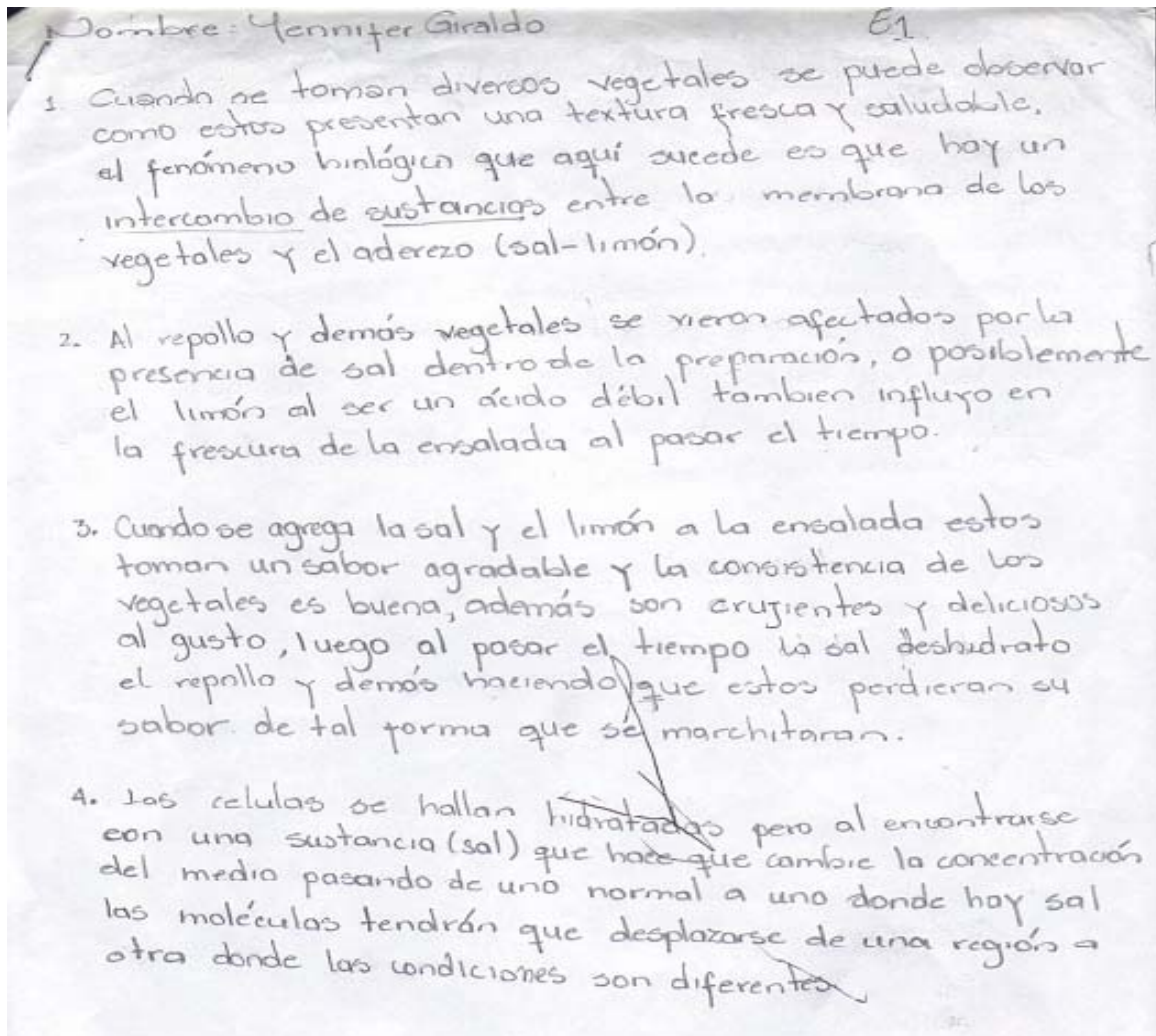 Nombre: Yennifer Giraldo E1
1 Cuando se toman diversos vegetales se puede observar
como estos presentan una textura fresca y saludable.
el fenómeno biológico que aquí sucede es que hay un
intercambio de sustancias entre la membrana de los
vegetales y el aderezo (sal-limón).
2. Al repollo y demás vegetales se vieron afectados por la
presencia de sal dentro de la preparación, o posiblemente
el limón al ser un ácido débil tambien influyo en
la frescura de la ensalada al pasar el tiempo.
3. Cuando se agrega la sal y el limón a la ensalada estos
toman un sabor agradable y la consistencia de los
vegetales es buena, además son crujientes y deliciosos
al gusto, luego al pasar el tiempo la sal deshidrato
el repollo y demás haciendo que estos perdieran su
sabor de tal forma que se marchitaran.
4. Las celulas se hallan hidratadas pero al encontrarse
con una sustancia (sal) que hace que cambie la concentración
del medio pasando de uno normal a uno donde hay sal
las moléculas tendrán que desplazarse de una región a
otra donde las condiciones son diferentes